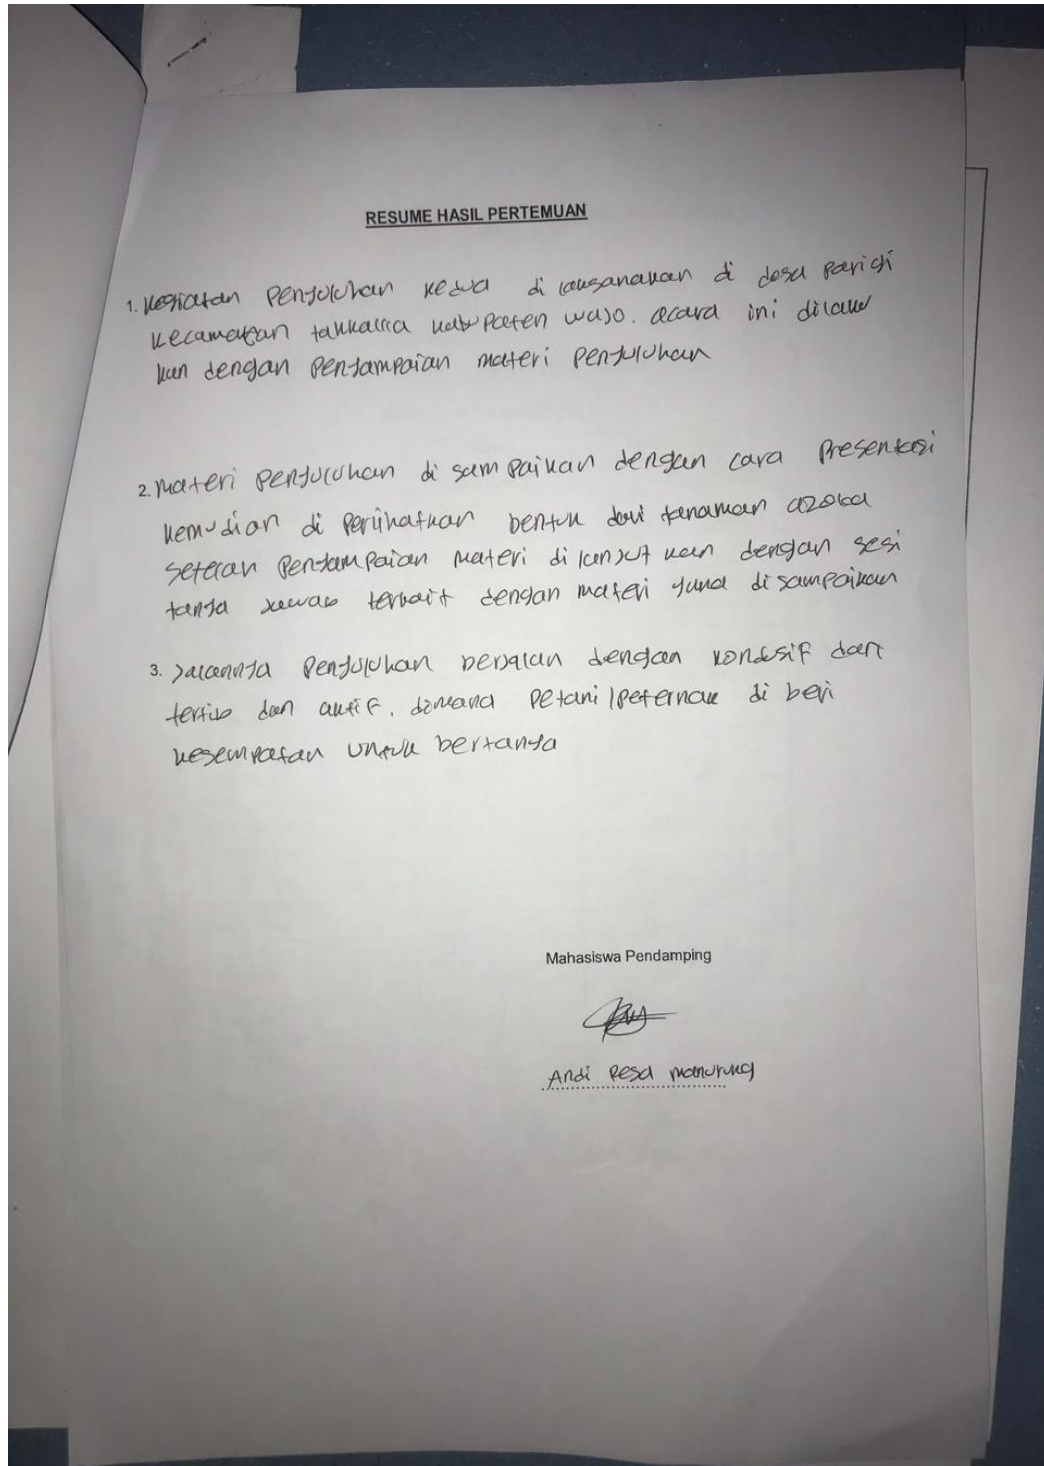 RESUME HASIL PERTEMUAN
1. Kegiatan Penyuluhan kedua di laksanakan di desa Parigi
kecamatan takkalla kabupaten wajo. acara ini dilaku
kan dengan Penyampaian materi Penyuluhan
2. Materi Penyuluhan di sampaikan dengan cara Presentasi
kemudian di Perlihatkan bentuk dari tanaman azolla
setelah Penyampaian Materi di lanjut kan dengan sesi
tanya jawab terkait dengan materi yang di sampaikan
3. Jalannya Penyuluhan berjalan dengan kondusif dan
tertib dan aktif. dimana Petani/Peternak di beri
kesempatan untuk bertanya
Mahasiswa Pendamping
Andi Resa Manurung